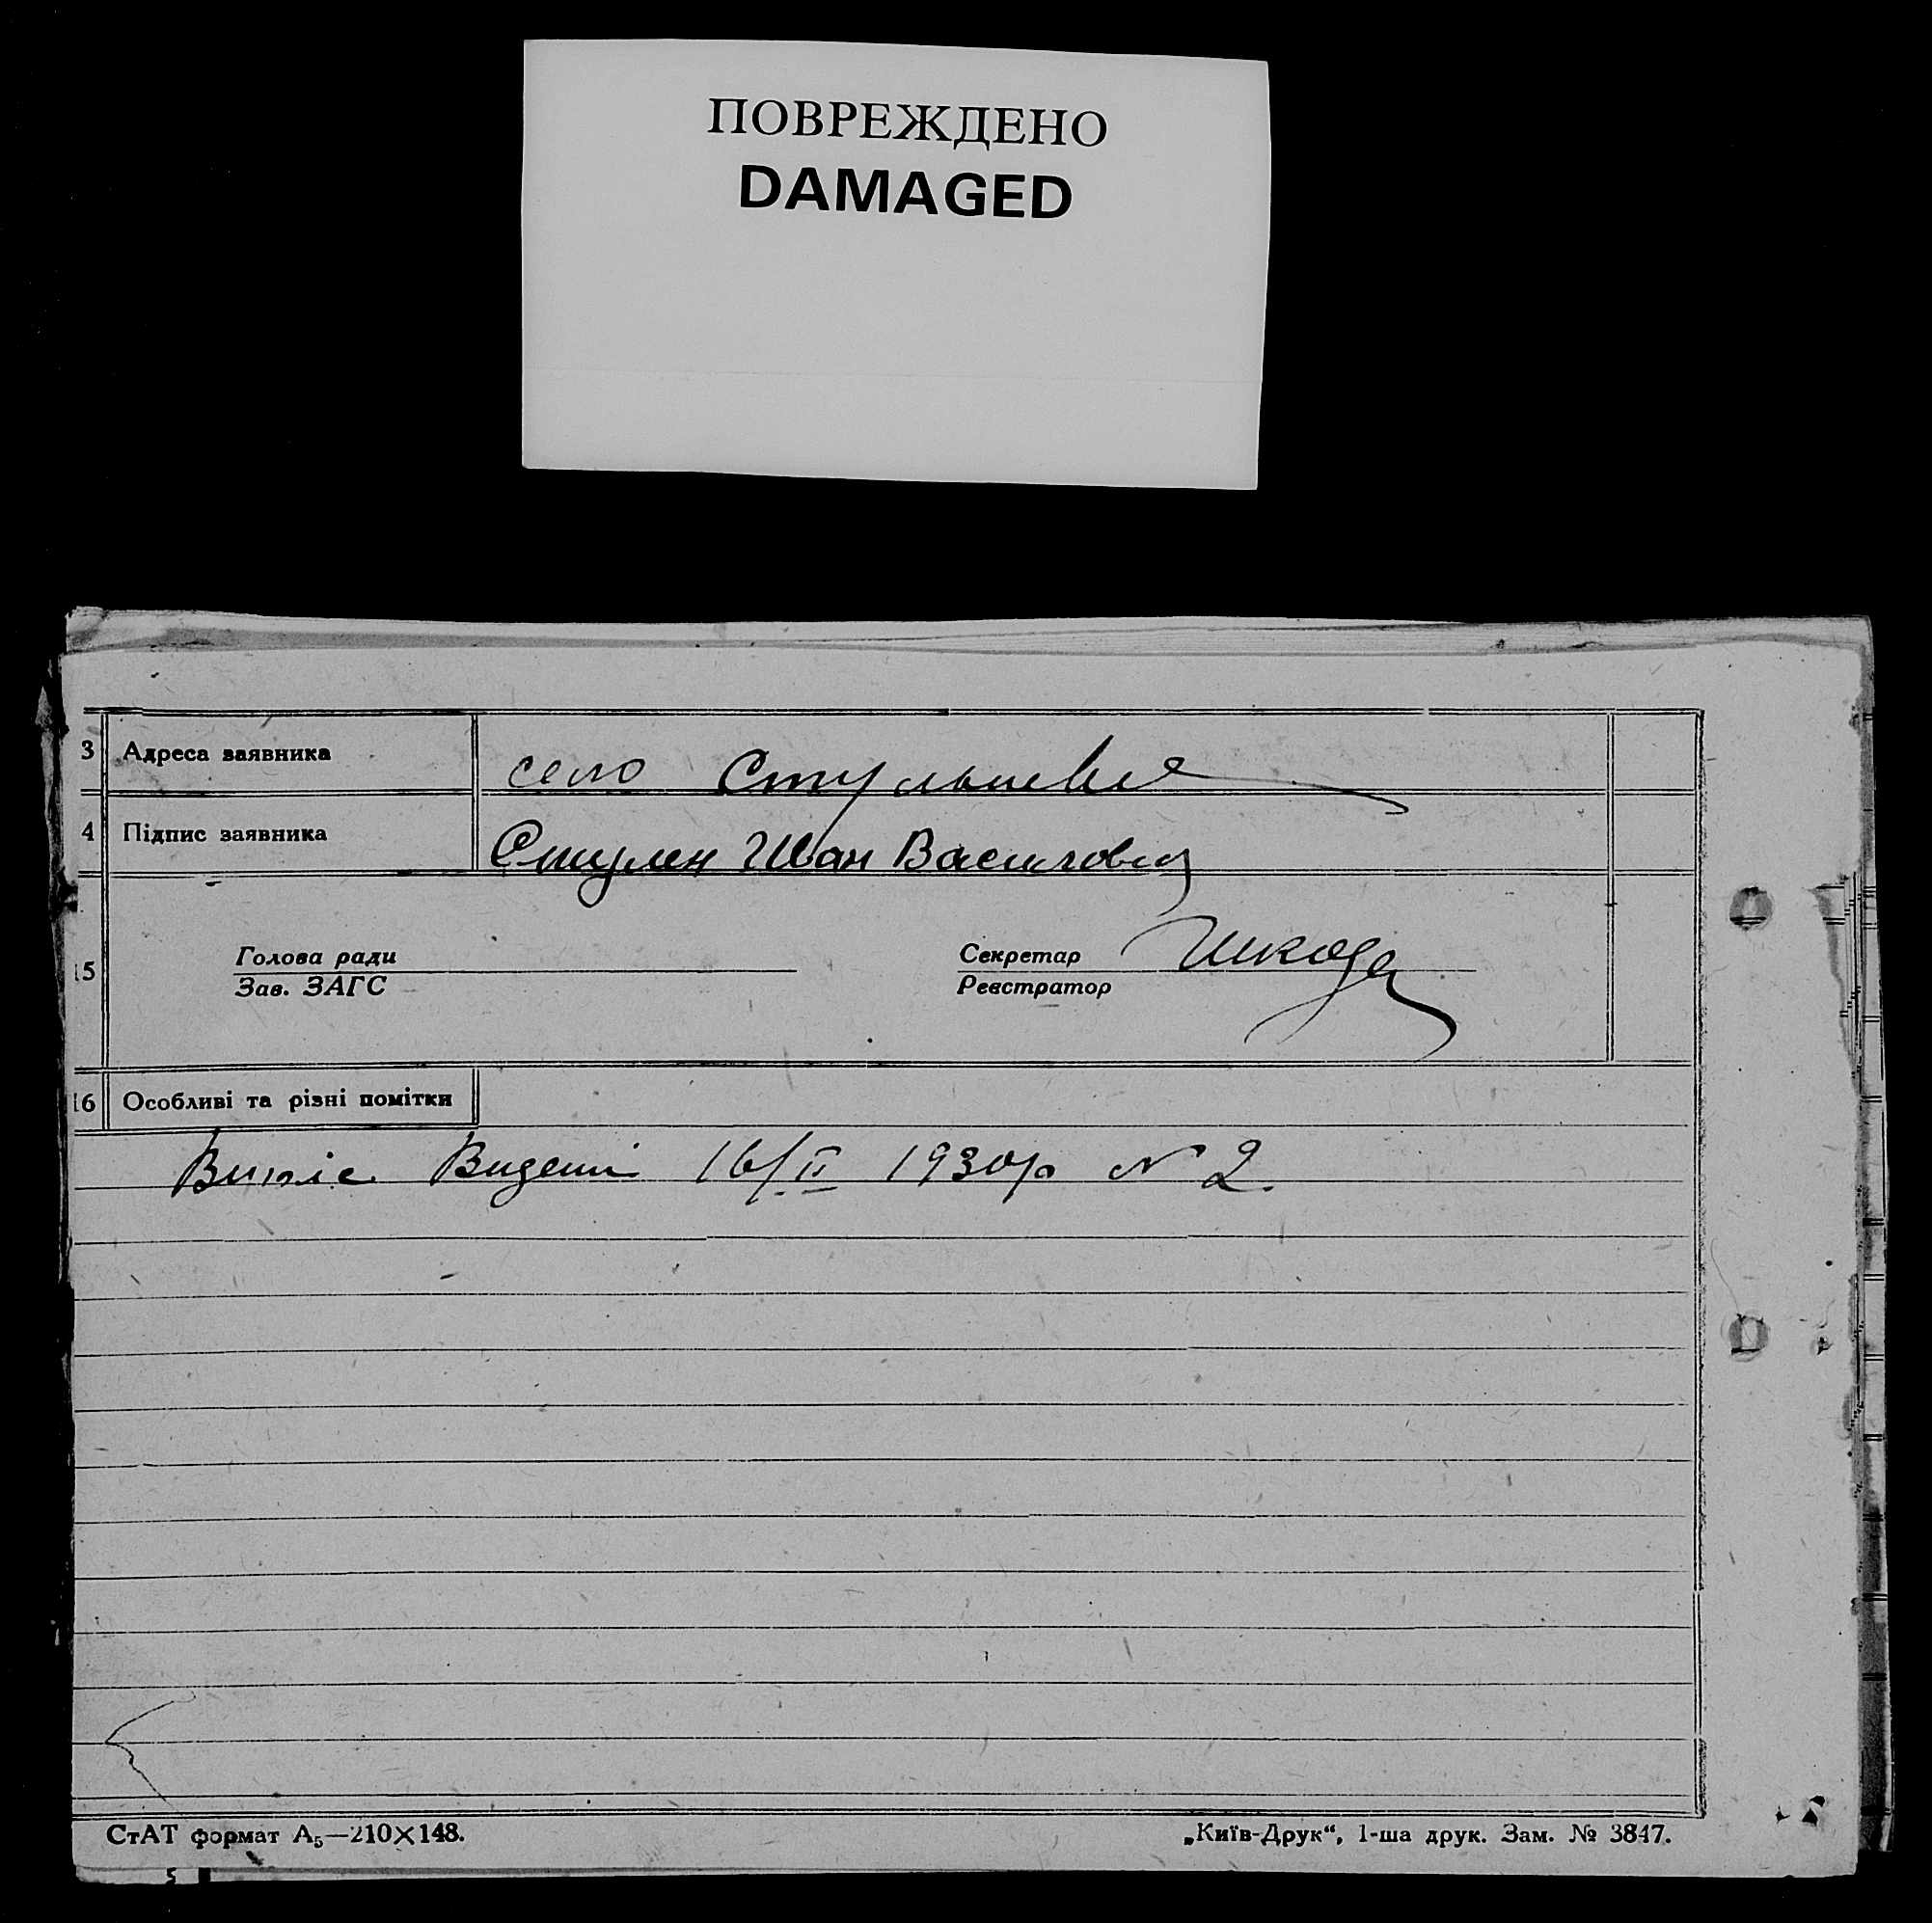 ПОВРЕЖДЕНО
DAMAGED
3 Адреса заявника село
4 Підпис заявника Стулен Иван Василович
15 Голова ради Секретар Шкода
Зав. ЗАГС Реєстратор
16 Особливі та різні помітки
Видані 16/II 1930 р № 2
СтАТ формат А₅—210×148. „Київ-Друк“, 1-ша друк. Зам. № 3847.